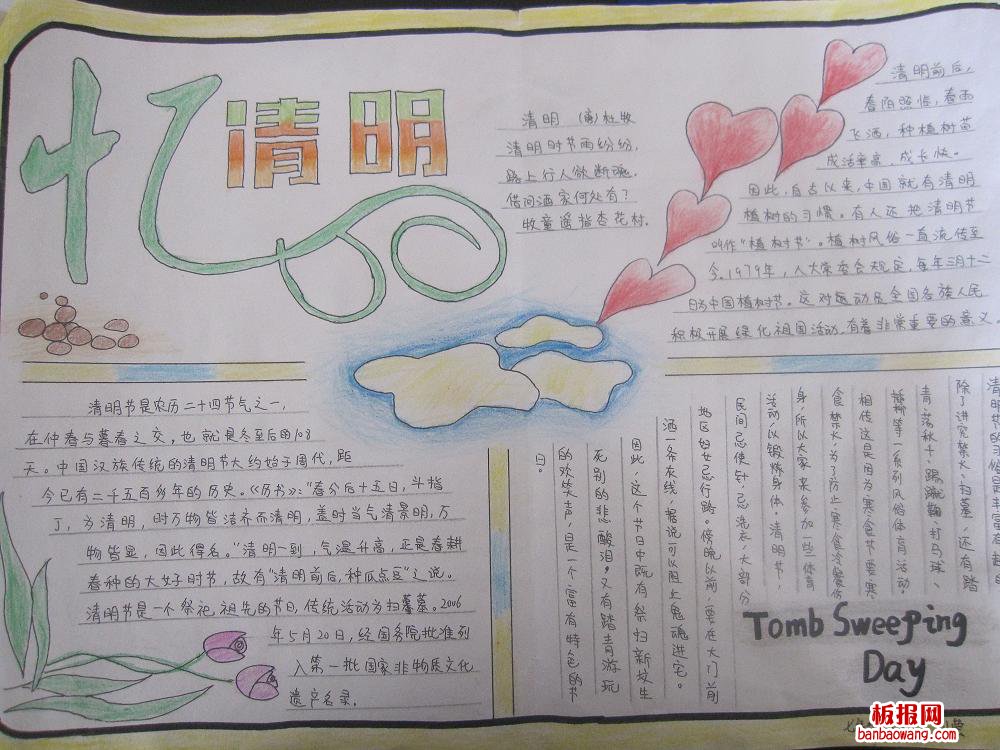 忆清明
清明 (唐)杜牧
清明时节雨纷纷,
路上行人欲断魂.
借问酒家何处有?
牧童遥指杏花村.
清明前后,
春阳照临,春雨
飞洒,种植树苗
成活率高,成长快。
因此,自古以来,中国就有清明
植树的习惯。有人还把清明节
叫作"植树节"。植树风俗一直流传至
今.1979年,人大常委会规定,每年三月十二
日为中国植树节。这对运动及全国各族人民
积极开展绿化祖国活动,有着非常重要的意义.
清明节是农历二十四节气之一,
在仲春与暮春之交,也就是冬至后的108
天。中国汉族传统的清明节大约始于周代,距
今已有二千五百多年的历史。《历书》:"春分后十五日,斗指
丁,为清明,时万物皆洁齐而清明,盖时当气清景明,万
物皆显,因此得名。"清明一到,气温升高,正是春耕
春种的大好时节,故有"清明前后,种瓜点豆"之说。
清明节是一个祭祀祖先的节日,传统活动为扫墓。2006
年5月20日,经国务院批准列
入第一批国家非物质文化
遗产名录.
清明节的习俗是丰富有趣的
除了讲究禁火、扫墓,还有踏
青、荡秋千、踢蹴鞠、打马球、
插柳等一系列风俗体育活动。
相传这是因为寒食节要寒
食禁火,为了防止寒食冷餐伤
身,所以大家来参加一些体育
活动,以锻炼身体。清明节,
民间忌使针,忌洗衣,大部分
地区妇女忌行路。傍晚以前,要在大门前
洒一条灰线,据说可以阻止鬼魂进宅。
因此,这个节日中既有祭扫新坟生
死别的悲酸泪,又有踏青游玩
的欢笑声,是一个富有特色的节
日。
Tomb Sweeping
Day
板报网
banbaowang.com